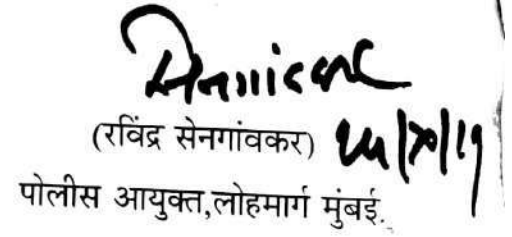 सेनगांवकर
(रविंद्र सेनगांवकर)
पोलीस आयुक्त,लोहमार्ग मुंबई.